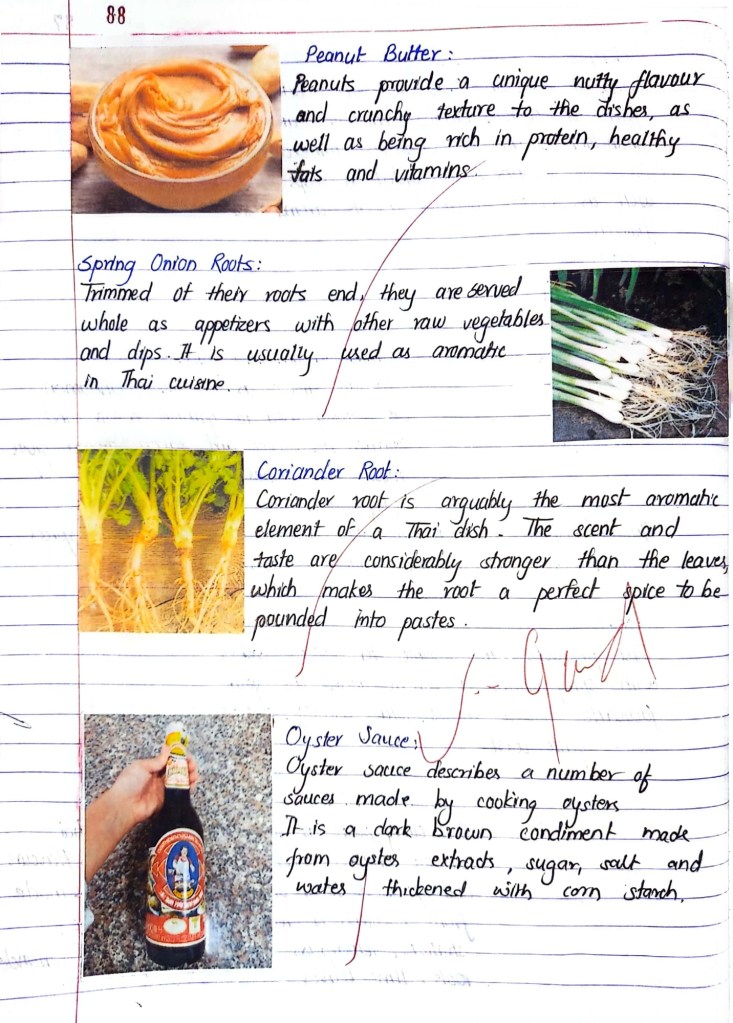 88
Peanut Butter:
Peanuts provide a unique nutty flavour
and crunchy texture to the dishes, as
well as being rich in protein, healthy
fats and vitamins.
Spring Onion Roots:
Trimmed of their roots end, they are served
whole as appetizers with other raw vegetables
and dips. It is usually used as aromatic
in Thai cuisine.
Coriander Root:
Coriander root is arguably the most aromatic
element of a Thai dish. The scent and
taste are considerably stronger than the leaves,
which makes the root a perfect spice to be
pounded into pastes.
Oyster Sauce:
Oyster sauce describes a number of
sauces made by cooking oysters
It is a dark brown condiment made
from oyster extracts, sugar, salt and
water thickened with corn starch.